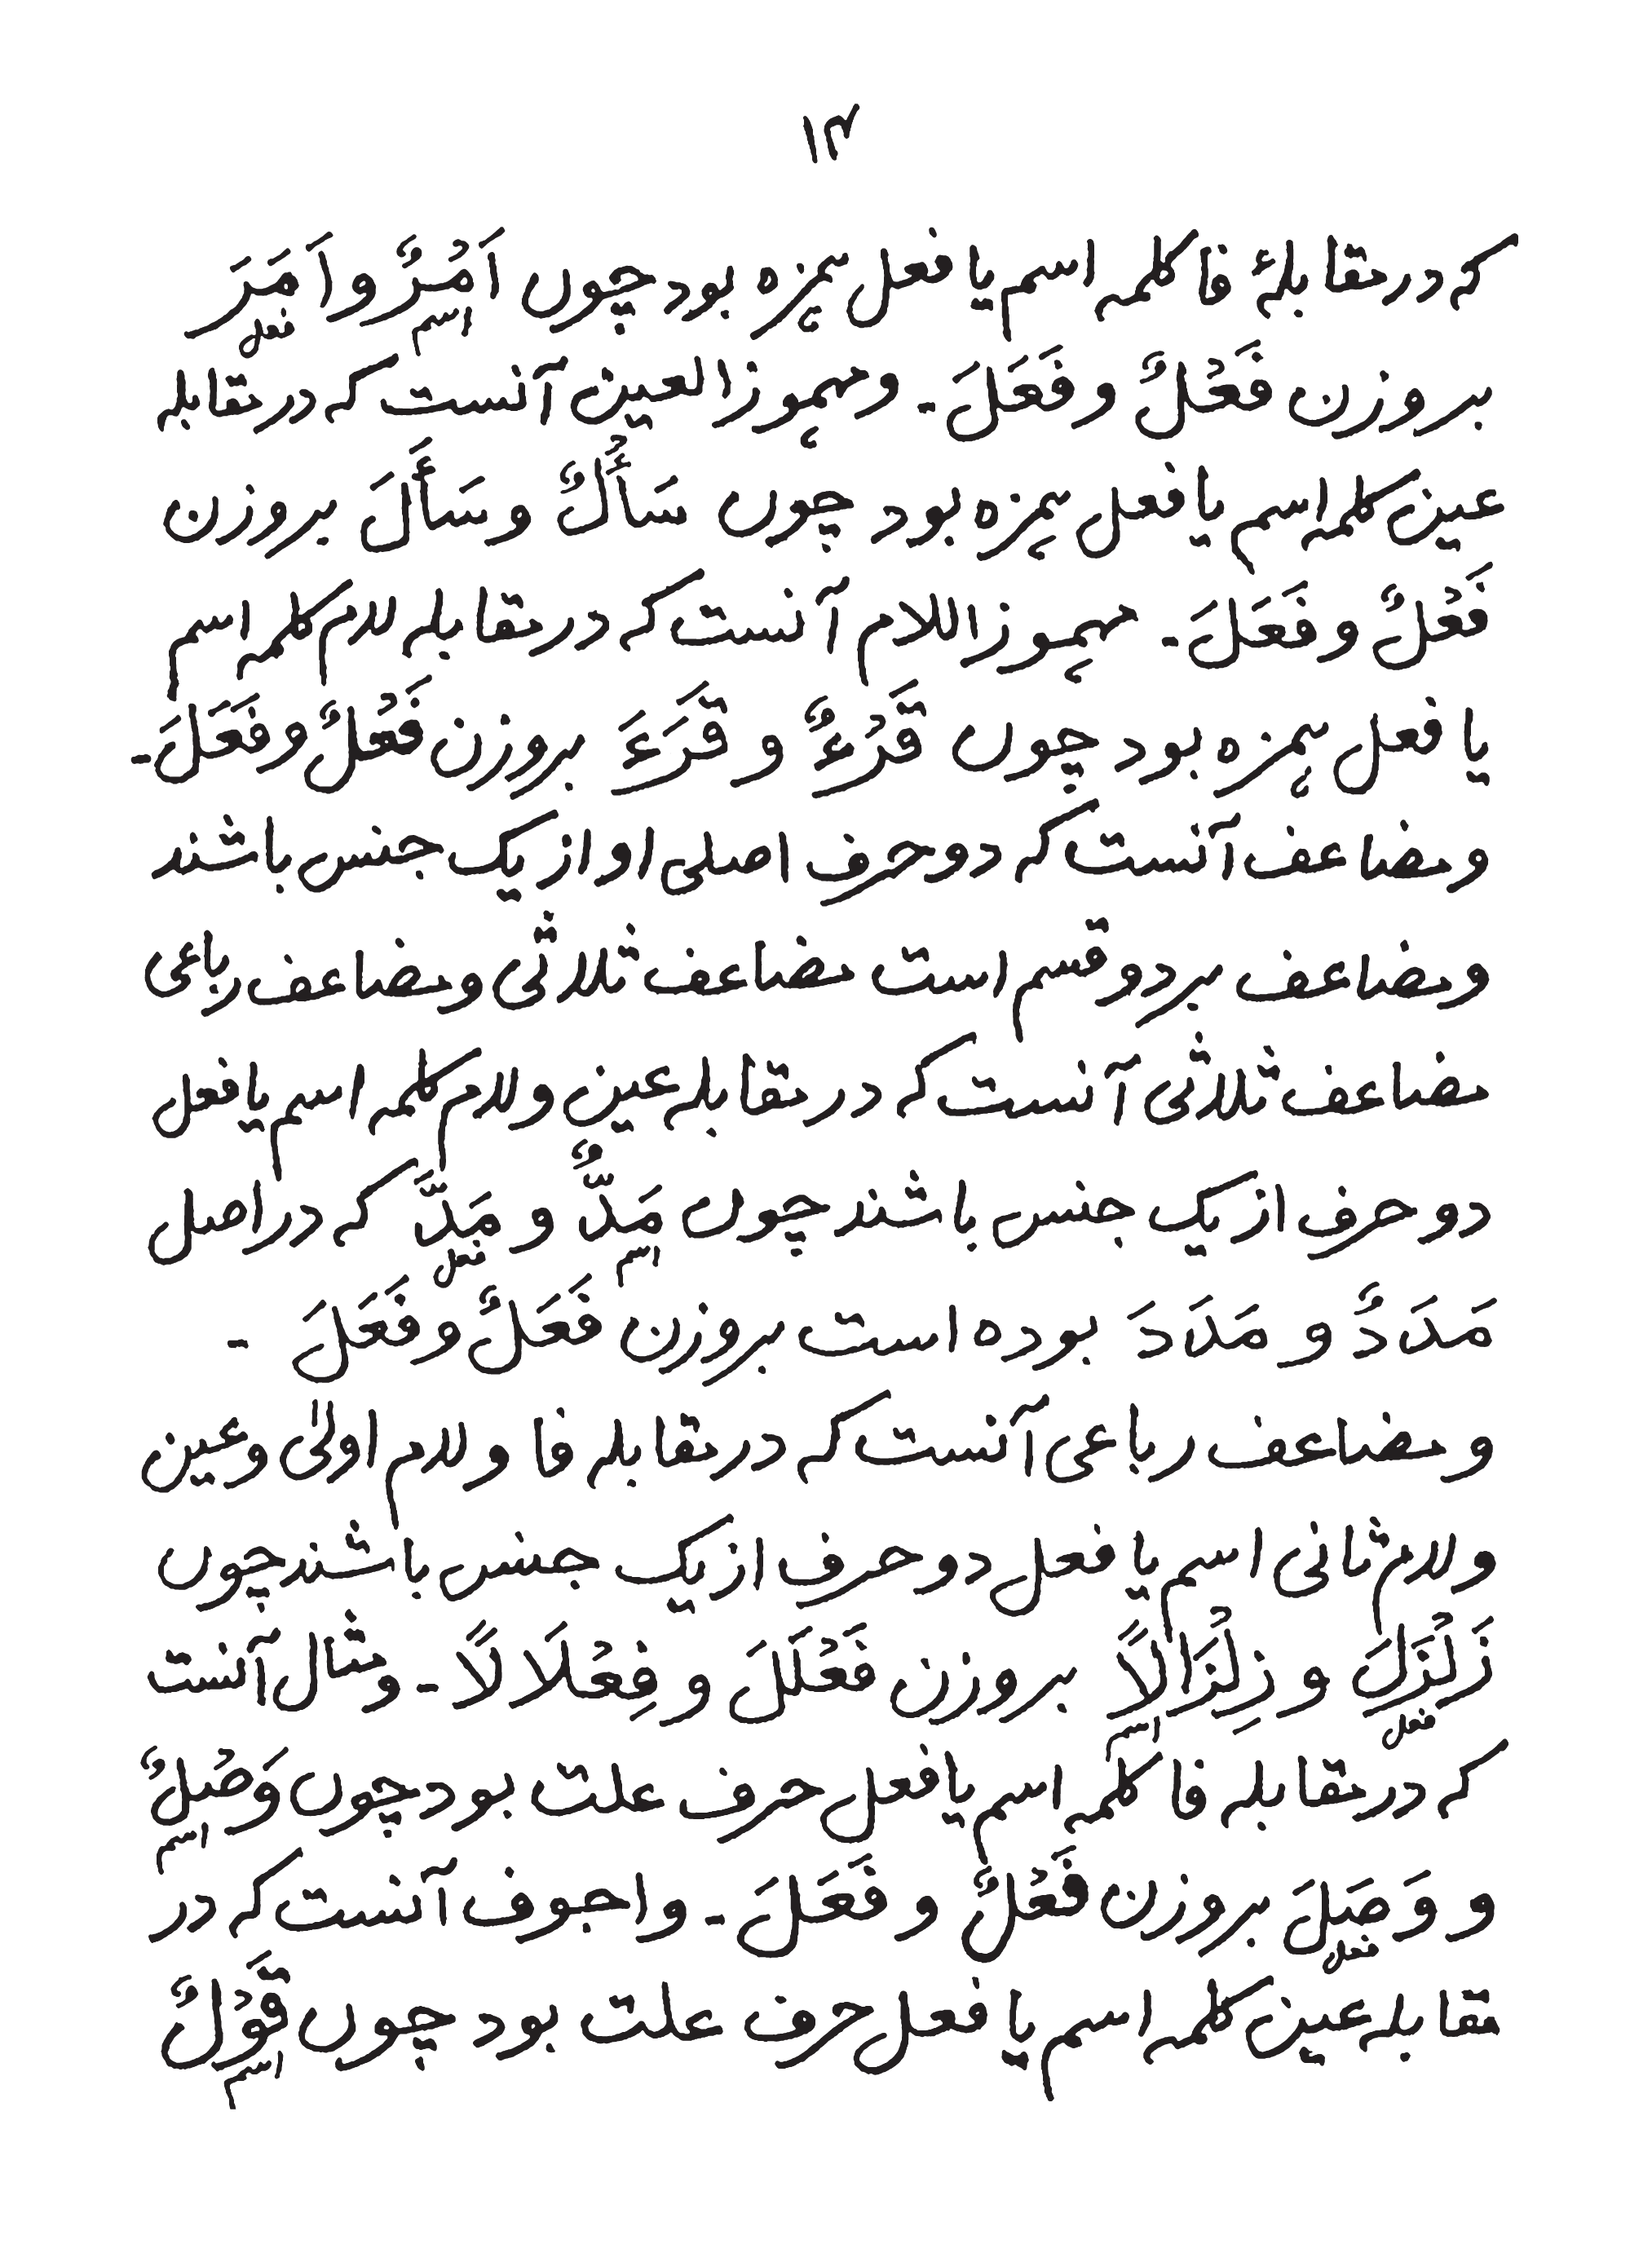 ۱۴
که در مقابلۀ فا کلمہ اسم یا فعل ہمزہ بود چوں اَمْرٌ و اَمَرَ
اسم فعل
بروزن فَعْلٌ و فَعَلَ۔ ومہموز العین آنست کہ در مقابلہ
عین کلمہ اسم یا فعل ہمزہ بود چوں سَأْلٌ و سَأَلَ بروزن
فَعْلٌ و فَعَلَ۔ مہموز اللام آنست کہ در مقابلہ لام کلمہ اسم
یا فعل ہمزہ بود چوں قَرْءٌ و قَرَءَ بروزن فَعْلٌ و فَعَلَ۔
و مضاعف آنست کہ دو حرف اصلی او از یک جنس باشند
و مضاعف بر دو قسم است مضاعف ثلاثی و مضاعف رباعی
مضاعف ثلاثی آنست کہ در مقابلہ عین و لام کلمہ اسم یا فعل
دو حرف از یک جنس باشند چوں مَدٌّ و مَدَّ کہ در اصل
اسم فعل
مَدَدٌ و مَدَدَ بودہ است بروزن فَعَلٌ و فَعَلَ ۔
و مضاعف رباعی آنست کہ در مقابلہ فا و لام اولیٰ و عین
و لام ثانی اسم یا فعل دو حرف از یک جنس باشند چوں
زَلْزَلَ و زِلْزَالًا بروزن فَعْلَلَ و فِعْلَالًا۔ و مثال آنست
فعل اسم
کہ در مقابلہ فا کلمہ اسم یا فعل حرف علت بود چوں وَصْلٌ
اسم
و وَصَلَ بروزن فَعْلٌ و فَعَلَ۔ و اجوف آنست کہ در
فعل
مقابلہ عین کلمہ اسم یا فعل حرف علت بود چوں قَوْلٌ
اسم